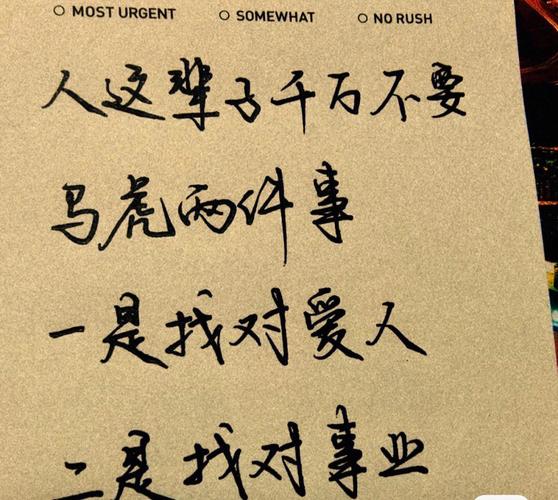 MOST URGENT SOMEWHAT NO RUSH
人这辈子千万不要
马虎两件事
一是找对爱人
二是找对事业